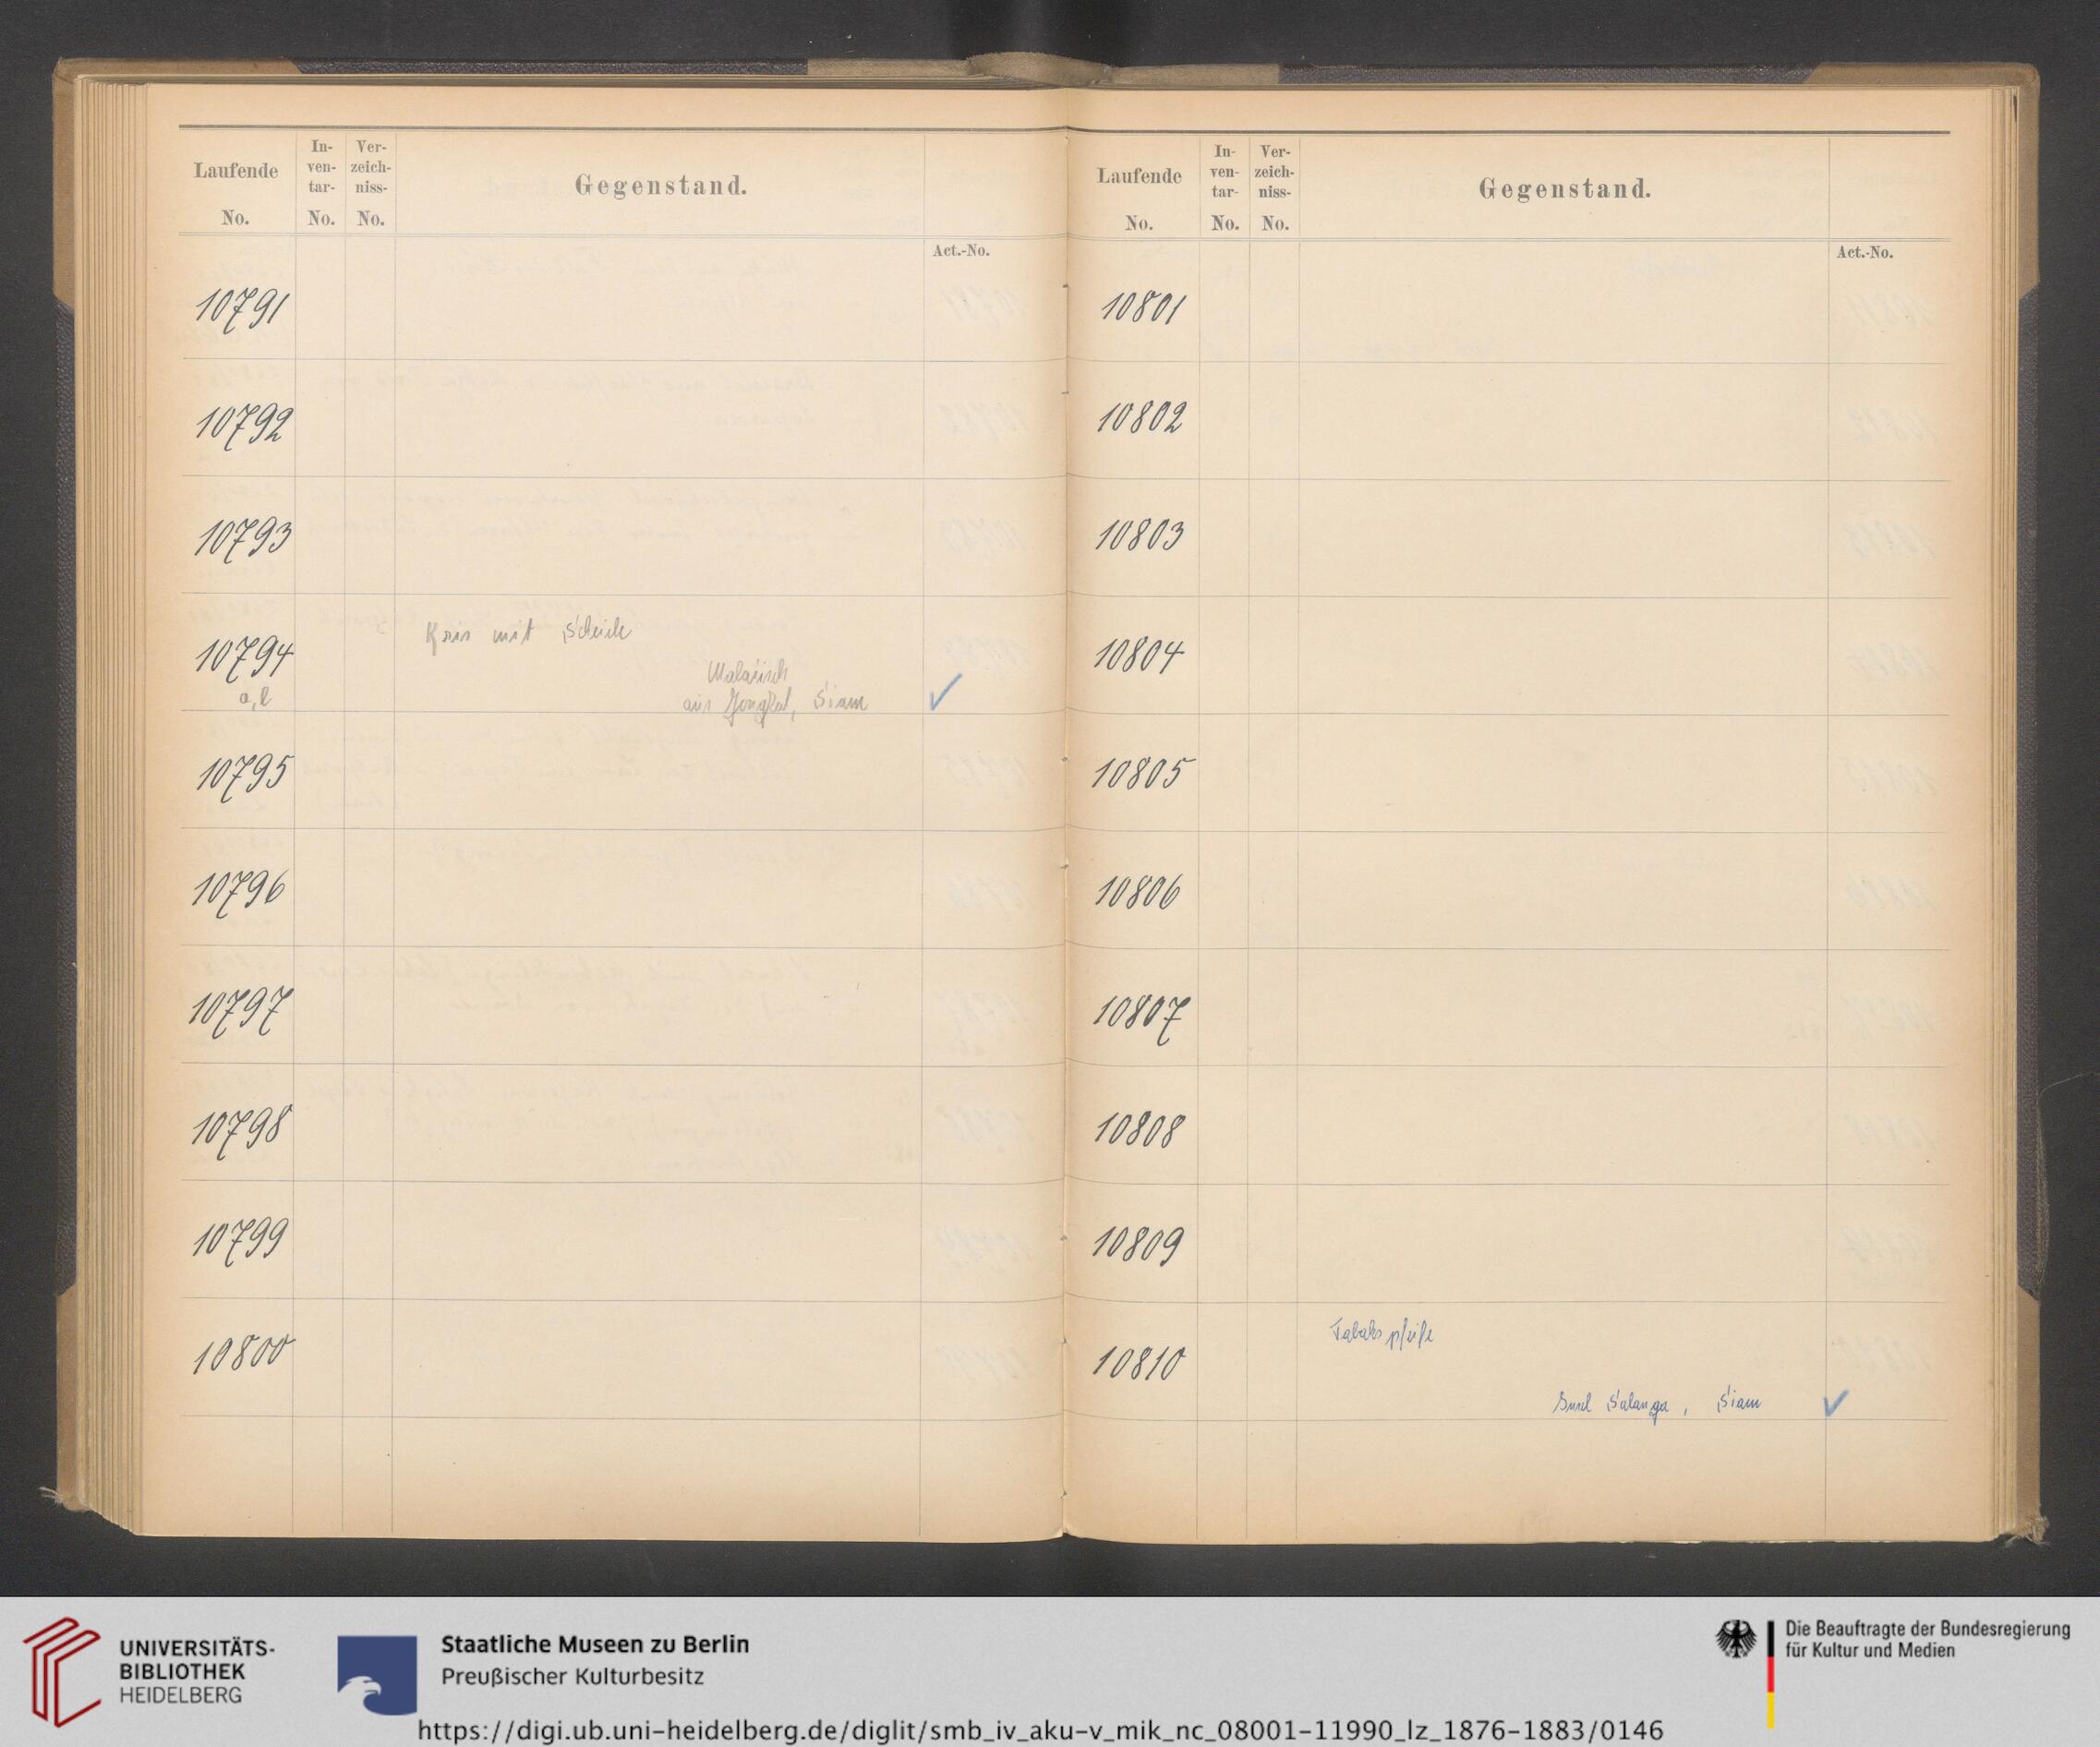 Laufende No.
In-ven-tar-No.
Ver-zeich-niss-No.
Gegenstand.
Act.-No.
10791
10792
10793
10794 a, b
Kris mit Scheide
Malaiisch
aus Siam
✓
10795
10796
10797
10798
10799
10800
Laufende No.
In-ven-tar-No.
Ver-zeich-niss-No.
Gegenstand.
Act.-No.
10801
10802
10803
10804
10805
10806
10807
10808
10809
10810
Tabakspfeife
Insel Salanga, Siam
✓
UNIVERSITÄTS-
BIBLIOTHEK
HEIDELBERG
Staatliche Museen zu Berlin
Preußischer Kulturbesitz
Die Beauftragte der Bundesregierung
für Kultur und Medien
https://digi.ub.uni-heidelberg.de/diglit/smb_iv_aku-v_mik_nc_08001-11990_lz_1876-1883/0146